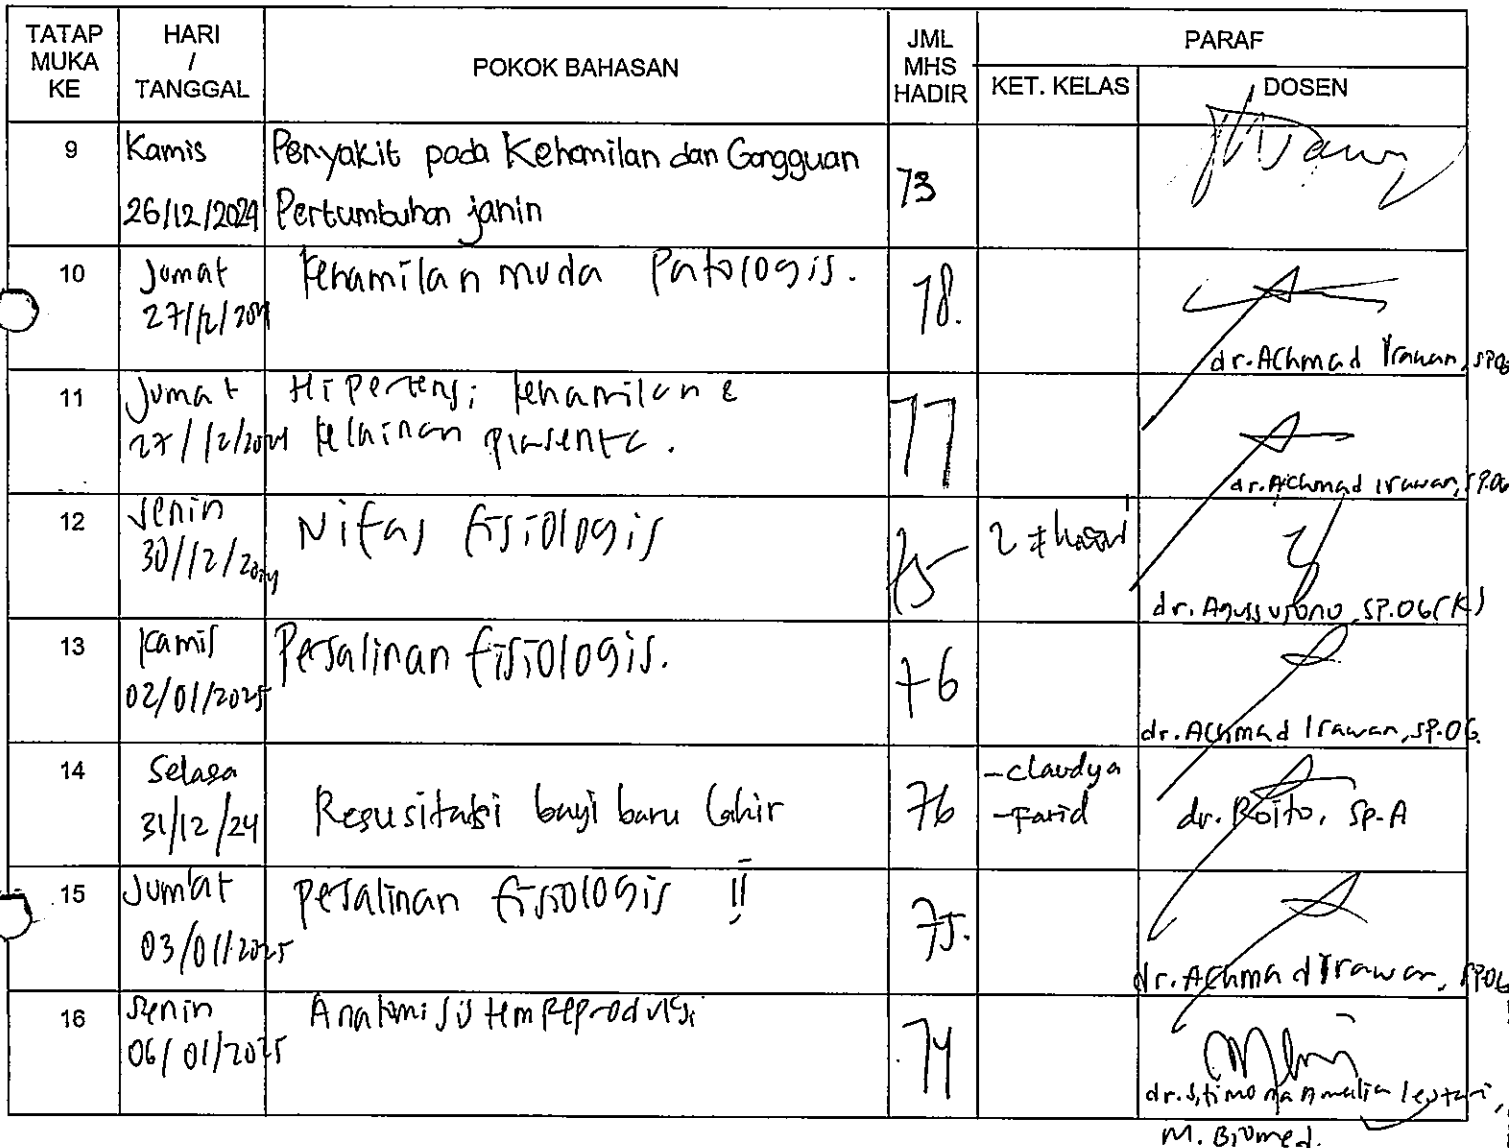 TATAP MUKA KE | HARI / TANGGAL | POKOK BAHASAN | JML MHS HADIR | PARAF
KET. KELAS | DOSEN
9 | Kamis 26/12/2024 | Penyakit pada Kehamilan dan Gangguan Pertumbuhan janin | 73
10 | Jumat 27/12/2024 | Kehamilan muda Patologis. | 78. | dr. Achmad Irawan, SP.OG
11 | Jumat 27/12/2024 | Hipertensi kehamilan & kelainan plasenta. | 77 | dr. Achmad Irawan, SP.OG
12 | Senin 30/12/2024 | Nifas fisiologis | 75 | 2 | dr. Agussutono, SP.OG(K)
13 | Kamis 02/01/2025 | Persalinan fisiologis. | 76 | dr. Achmad Irawan, SP.OG.
14 | Selasa 31/12/24 | Resusitasi bayi baru lahir | 76 | -Claudya -Farid | dr. Roito, Sp-A
15 | Jum'at 03/01/2025 | Persalinan fisiologis II | 75. | dr. Achmad Irawan, SP.OG
16 | Senin 06/01/2025 | Anatomi sistem Reproduksi | 74 | dr. Siti mona Amelia lestari, M. Biomed.